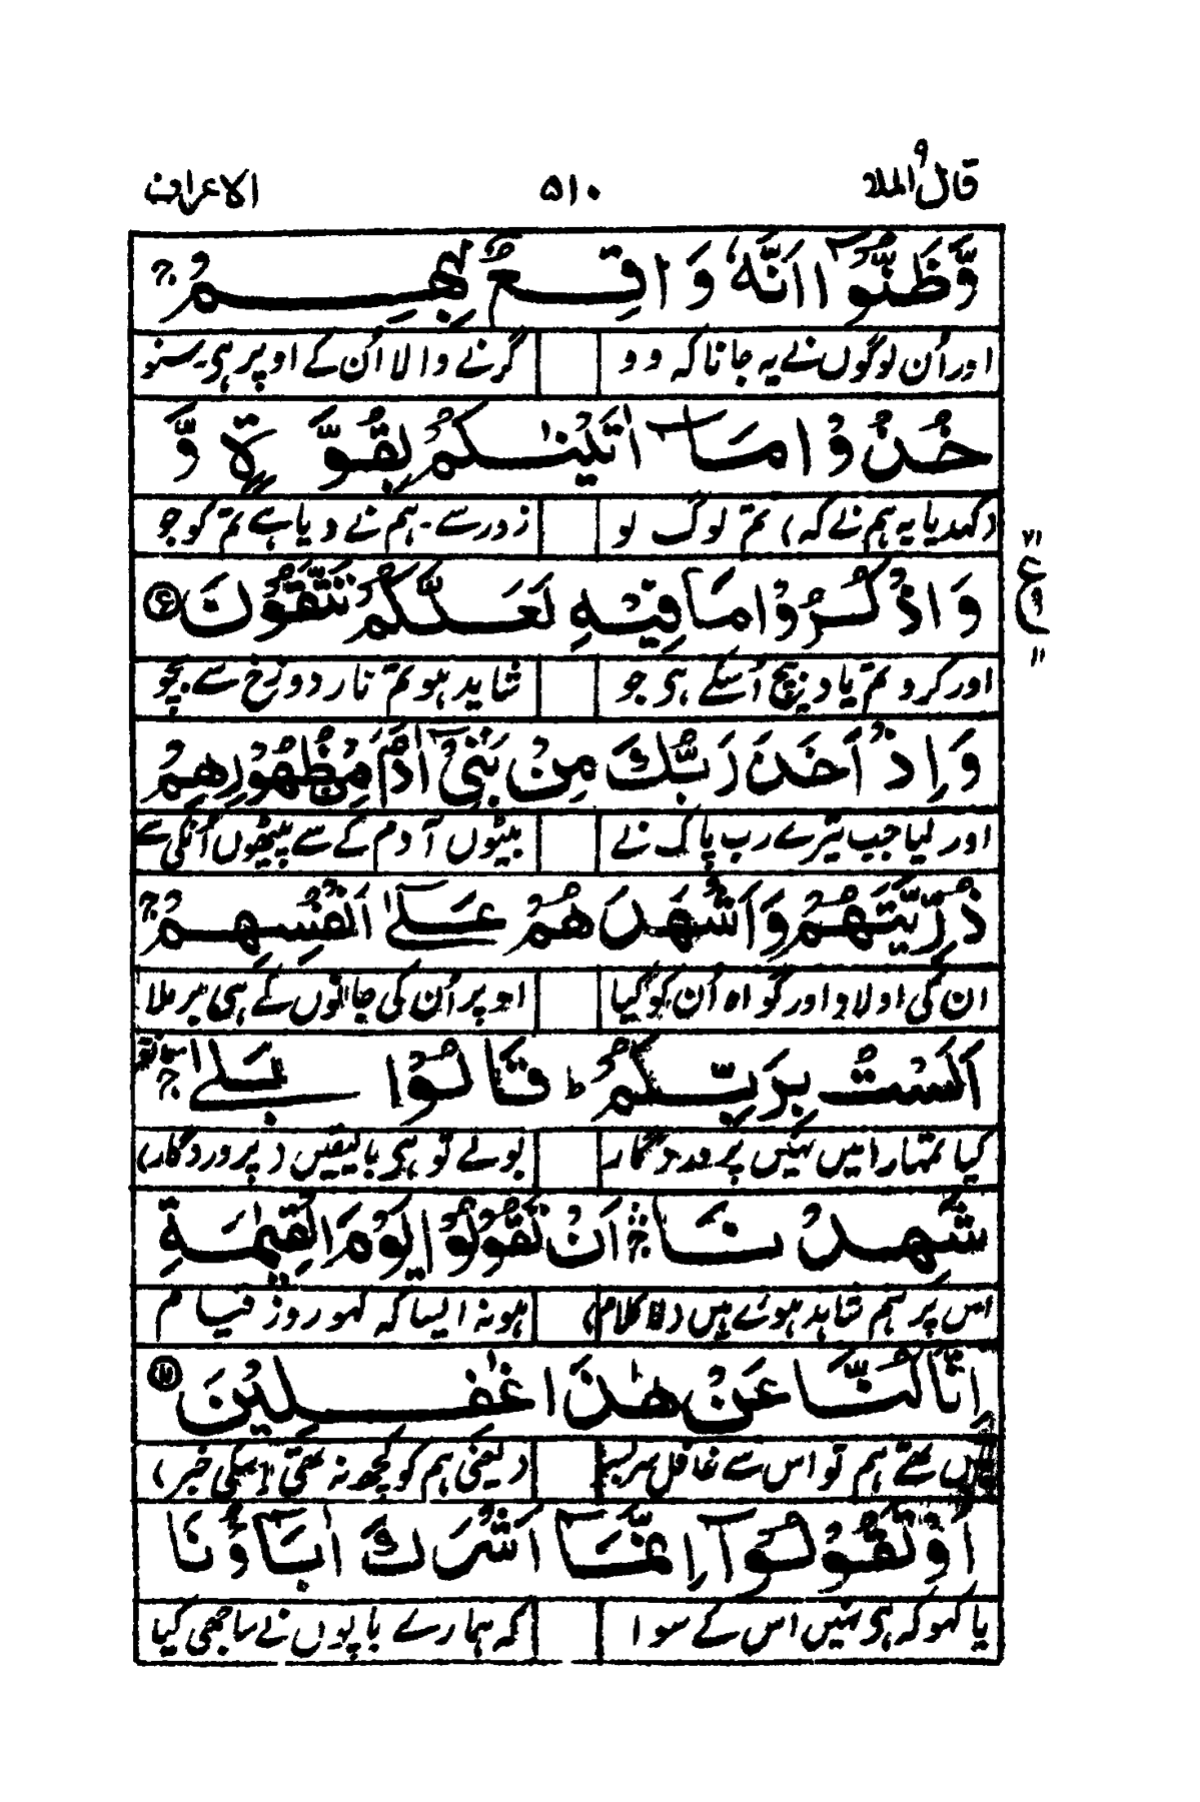 قال الملا ۹ ۵۱۰ الاعراف
وَّظَنُّوْۤا اَنَّهٗ وَاقِعٌۢ بِهِمْ ۚ
اور اُن لوگوں نے یہ جانا کہ وو گرنے والا اُن کے اوپر ہی۔ سنو
خُذُوْا مَاۤ اٰتَيْنٰكُمْ بِقُوَّةٍ وَّ
(کہدیا یہ ہم نے کہ) تم لوگ لو زور سے۔ ہم نے دیا ہے تم کو جو
وَاذْكُرُوْا مَا فِيْهِ لَعَلَّكُمْ تَتَّقُوْنَ
۲۱
ع
۹
۱۱
اور کرو تم یاد بیچ اُسکے ہی جو شاید ہو تم نار دوزخ سے بچو
وَاِذْ اَخَذَ رَبُّكَ مِنْۢ بَنِيْۤ اٰدَمَ مِنْ ظُهُوْرِهِمْ
اور لیا جب تیرے رب پاک نے بیٹوں آدم کے سے پیٹھوں اُنکی سے
ذُرِّيَّتَهُمْ وَاَشْهَدَهُمْ عَلٰۤى اَنْفُسِهِمْ ۚ
ان کی اولاد اور گواہ اُن کو کیا اوپر اُن کی جانوں کے ہی برملا
اَلَسْتُ بِرَبِّكُمْ ؕ قَالُوْا بَلٰى ۚ
کیا تمہارا میں نہیں پروردگار بولے تو ہی بالیقیں (پروردگار)
شَهِدْنَا ۚ اَنْ تَقُوْلُوْا يَوْمَ الْقِيٰمَةِ
اس پر ہم شاہد ہوئے ہیں (لاکلام) ہو نہ ایسا کہ کہو روز قیام
اِنَّا كُنَّا عَنْ هٰذَا غٰفِلِيْنَ
تھے ہم تو اس سے غافل سربسر (یعنی ہم کو کچھ نہ تھی اسکی خبر)
اَوْ تَقُوْلُوْۤا اِنَّمَاۤ اَشْرَكَ اٰبَآؤُنَا
یا کہو کہ ہی نہیں اس کے سوا کہ ہمارے باپوں نے ساجھی کیا